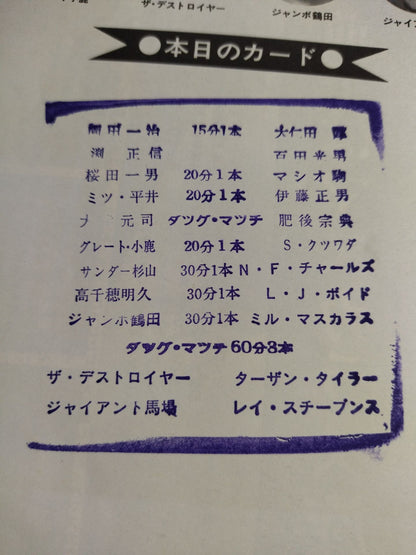 小鹿 ザ・デストロイヤー ジャンボ鶴田 ジャイアン
●本日のカード●
岡田一治 15分1本 大仁田
渕 正信 百田光男
桜田一男 20分1本 マシオ駒
ミツ・平井 20分1本 伊藤正男
大 元司 タッグ・マッチ 肥後宗典
グレート・小鹿 20分1本 S・クツワダ
サンダー杉山 30分1本 N・F・チャールズ
高千穂明久 30分1本 L・J・ボイド
ジャンボ鶴田 30分1本 ミル・マスカラス
タッグ・マッチ 60分3本
ザ・デストロイヤー ターザン・タイラー
ジャイアント馬場 レイ・スチーブンス